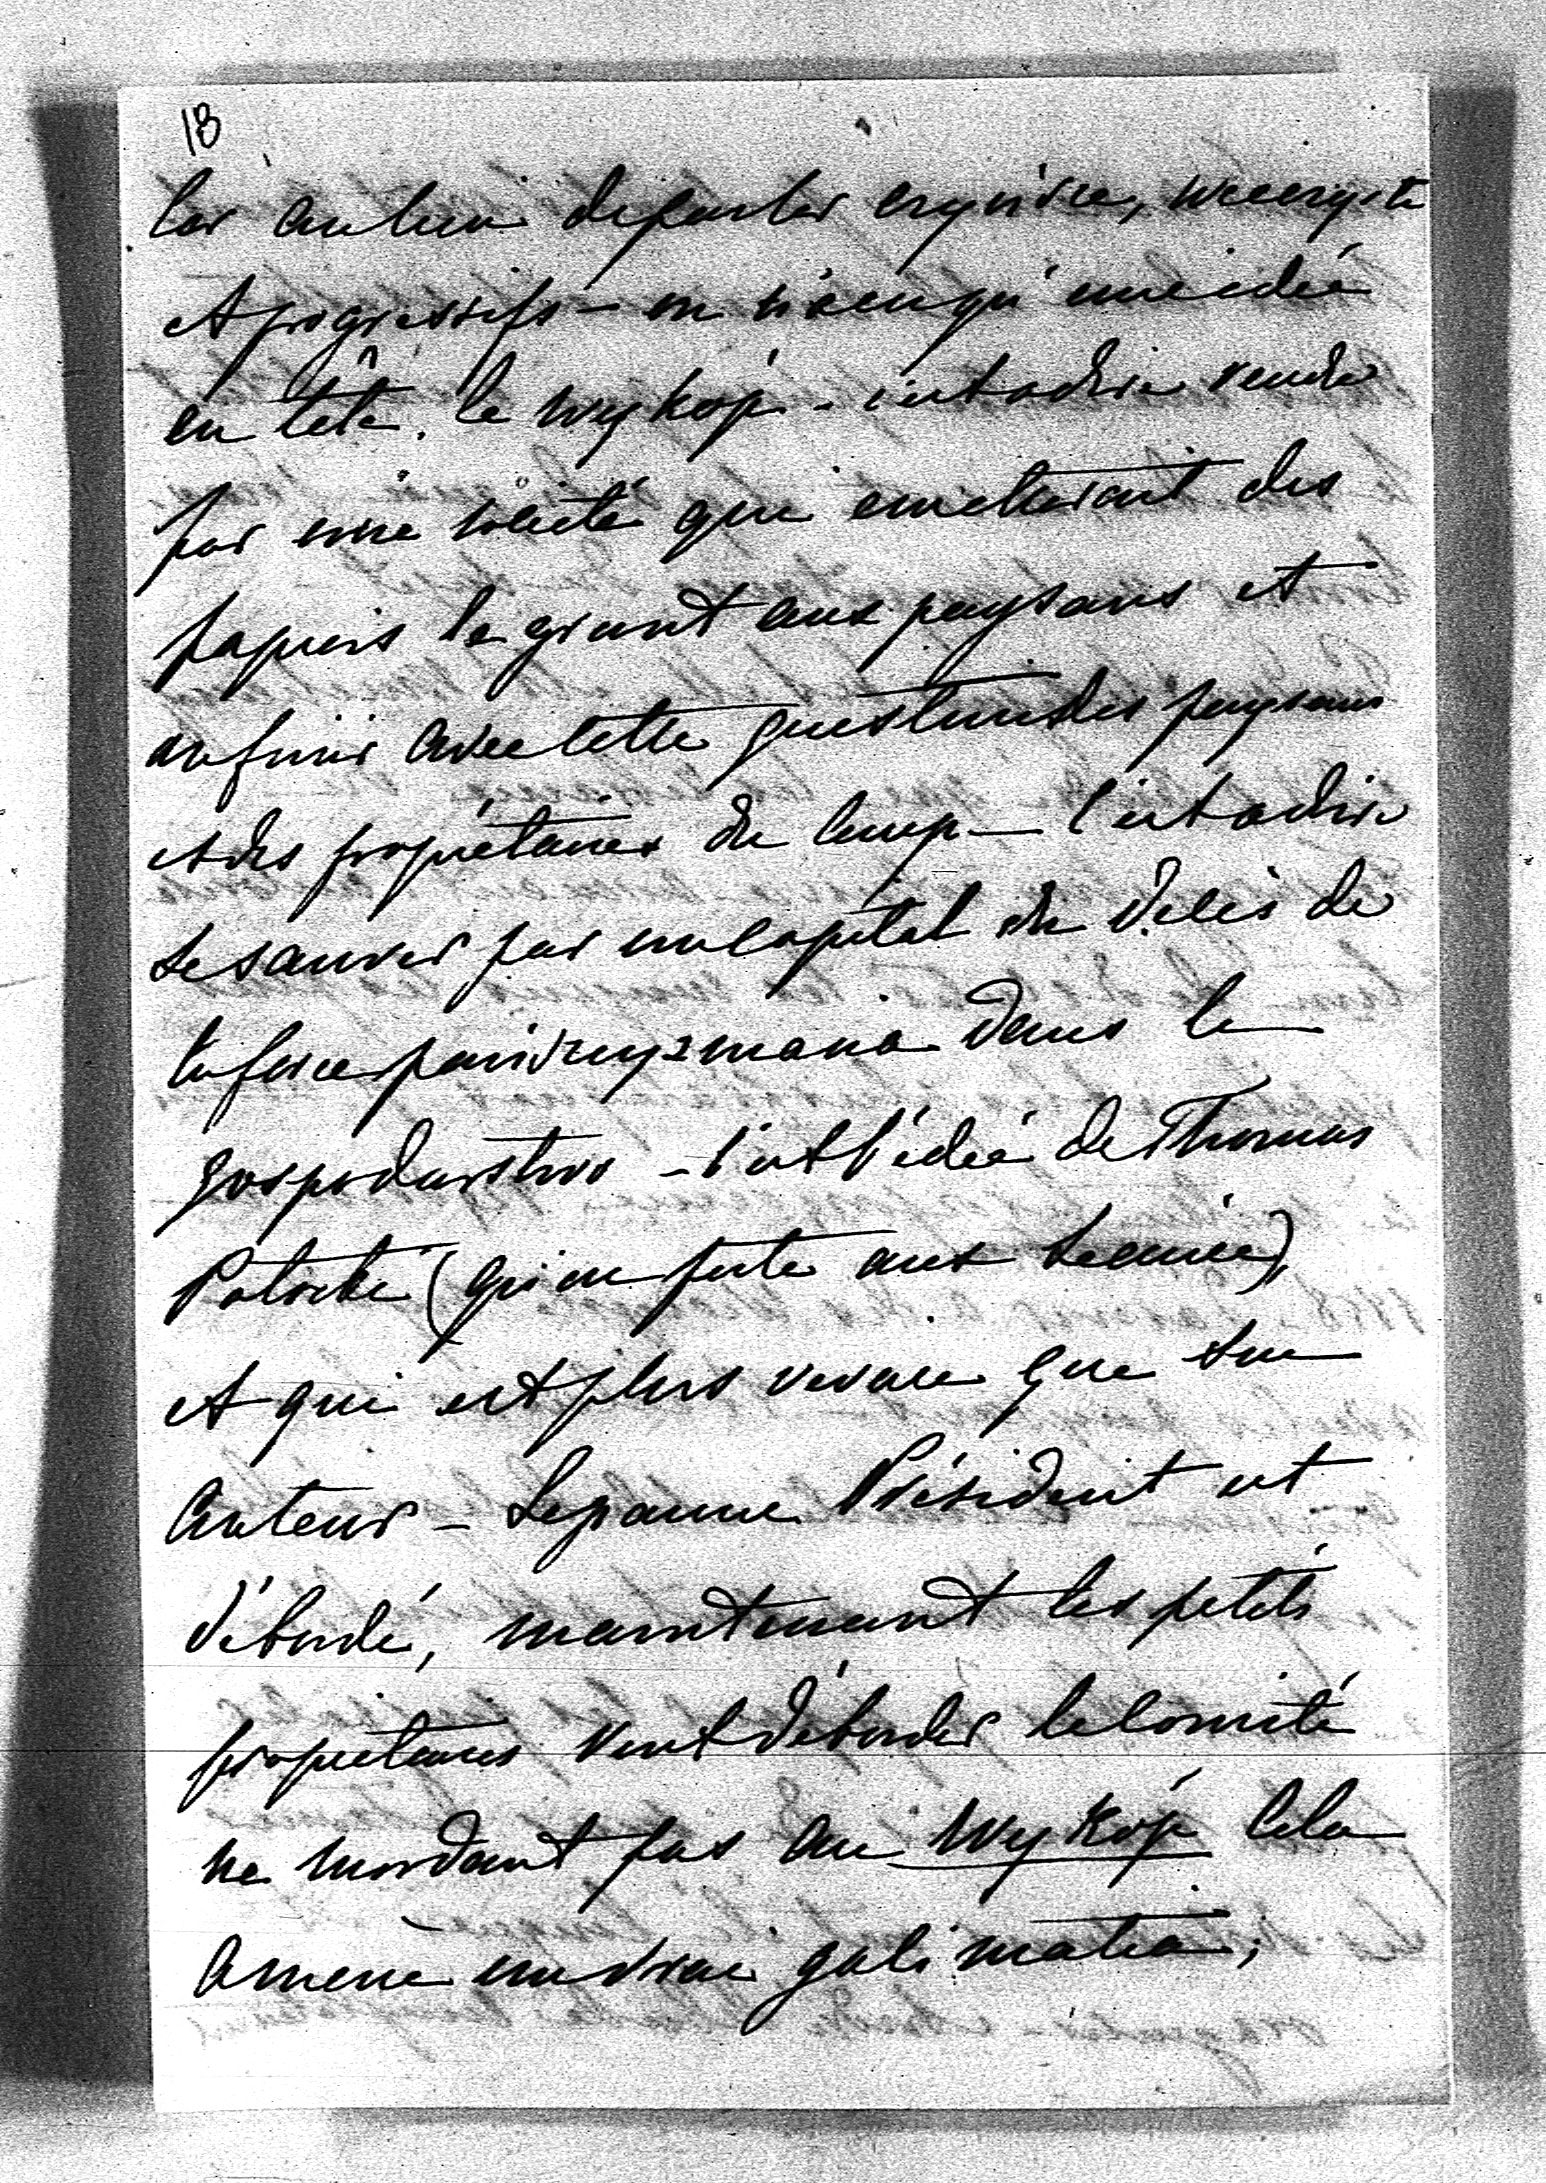 18
Car au lieu de parler czynsze, wieczyste
et progressifs – on n'a eu qu'une idée
en tête. le wykóp – c'est a dire vendre
par une société qui emetterait des
papiers le grunt aux paysans et
en finir avec cette question des paysans
et des propriétaires du coup – c'est a dire
se sauver par un capital du delà de
la force dans le
gospodarstwo – C'est l'idée de Thomas
Potocki (qu'on fête aux séances),
et qui est plus vivace que son
auteur – Le pauvre Président est
débordé, maintenant les petits
propriétaires vont déborder le Comité
ne mordant pas au wykóp Cela
amène un vrai galimatia;